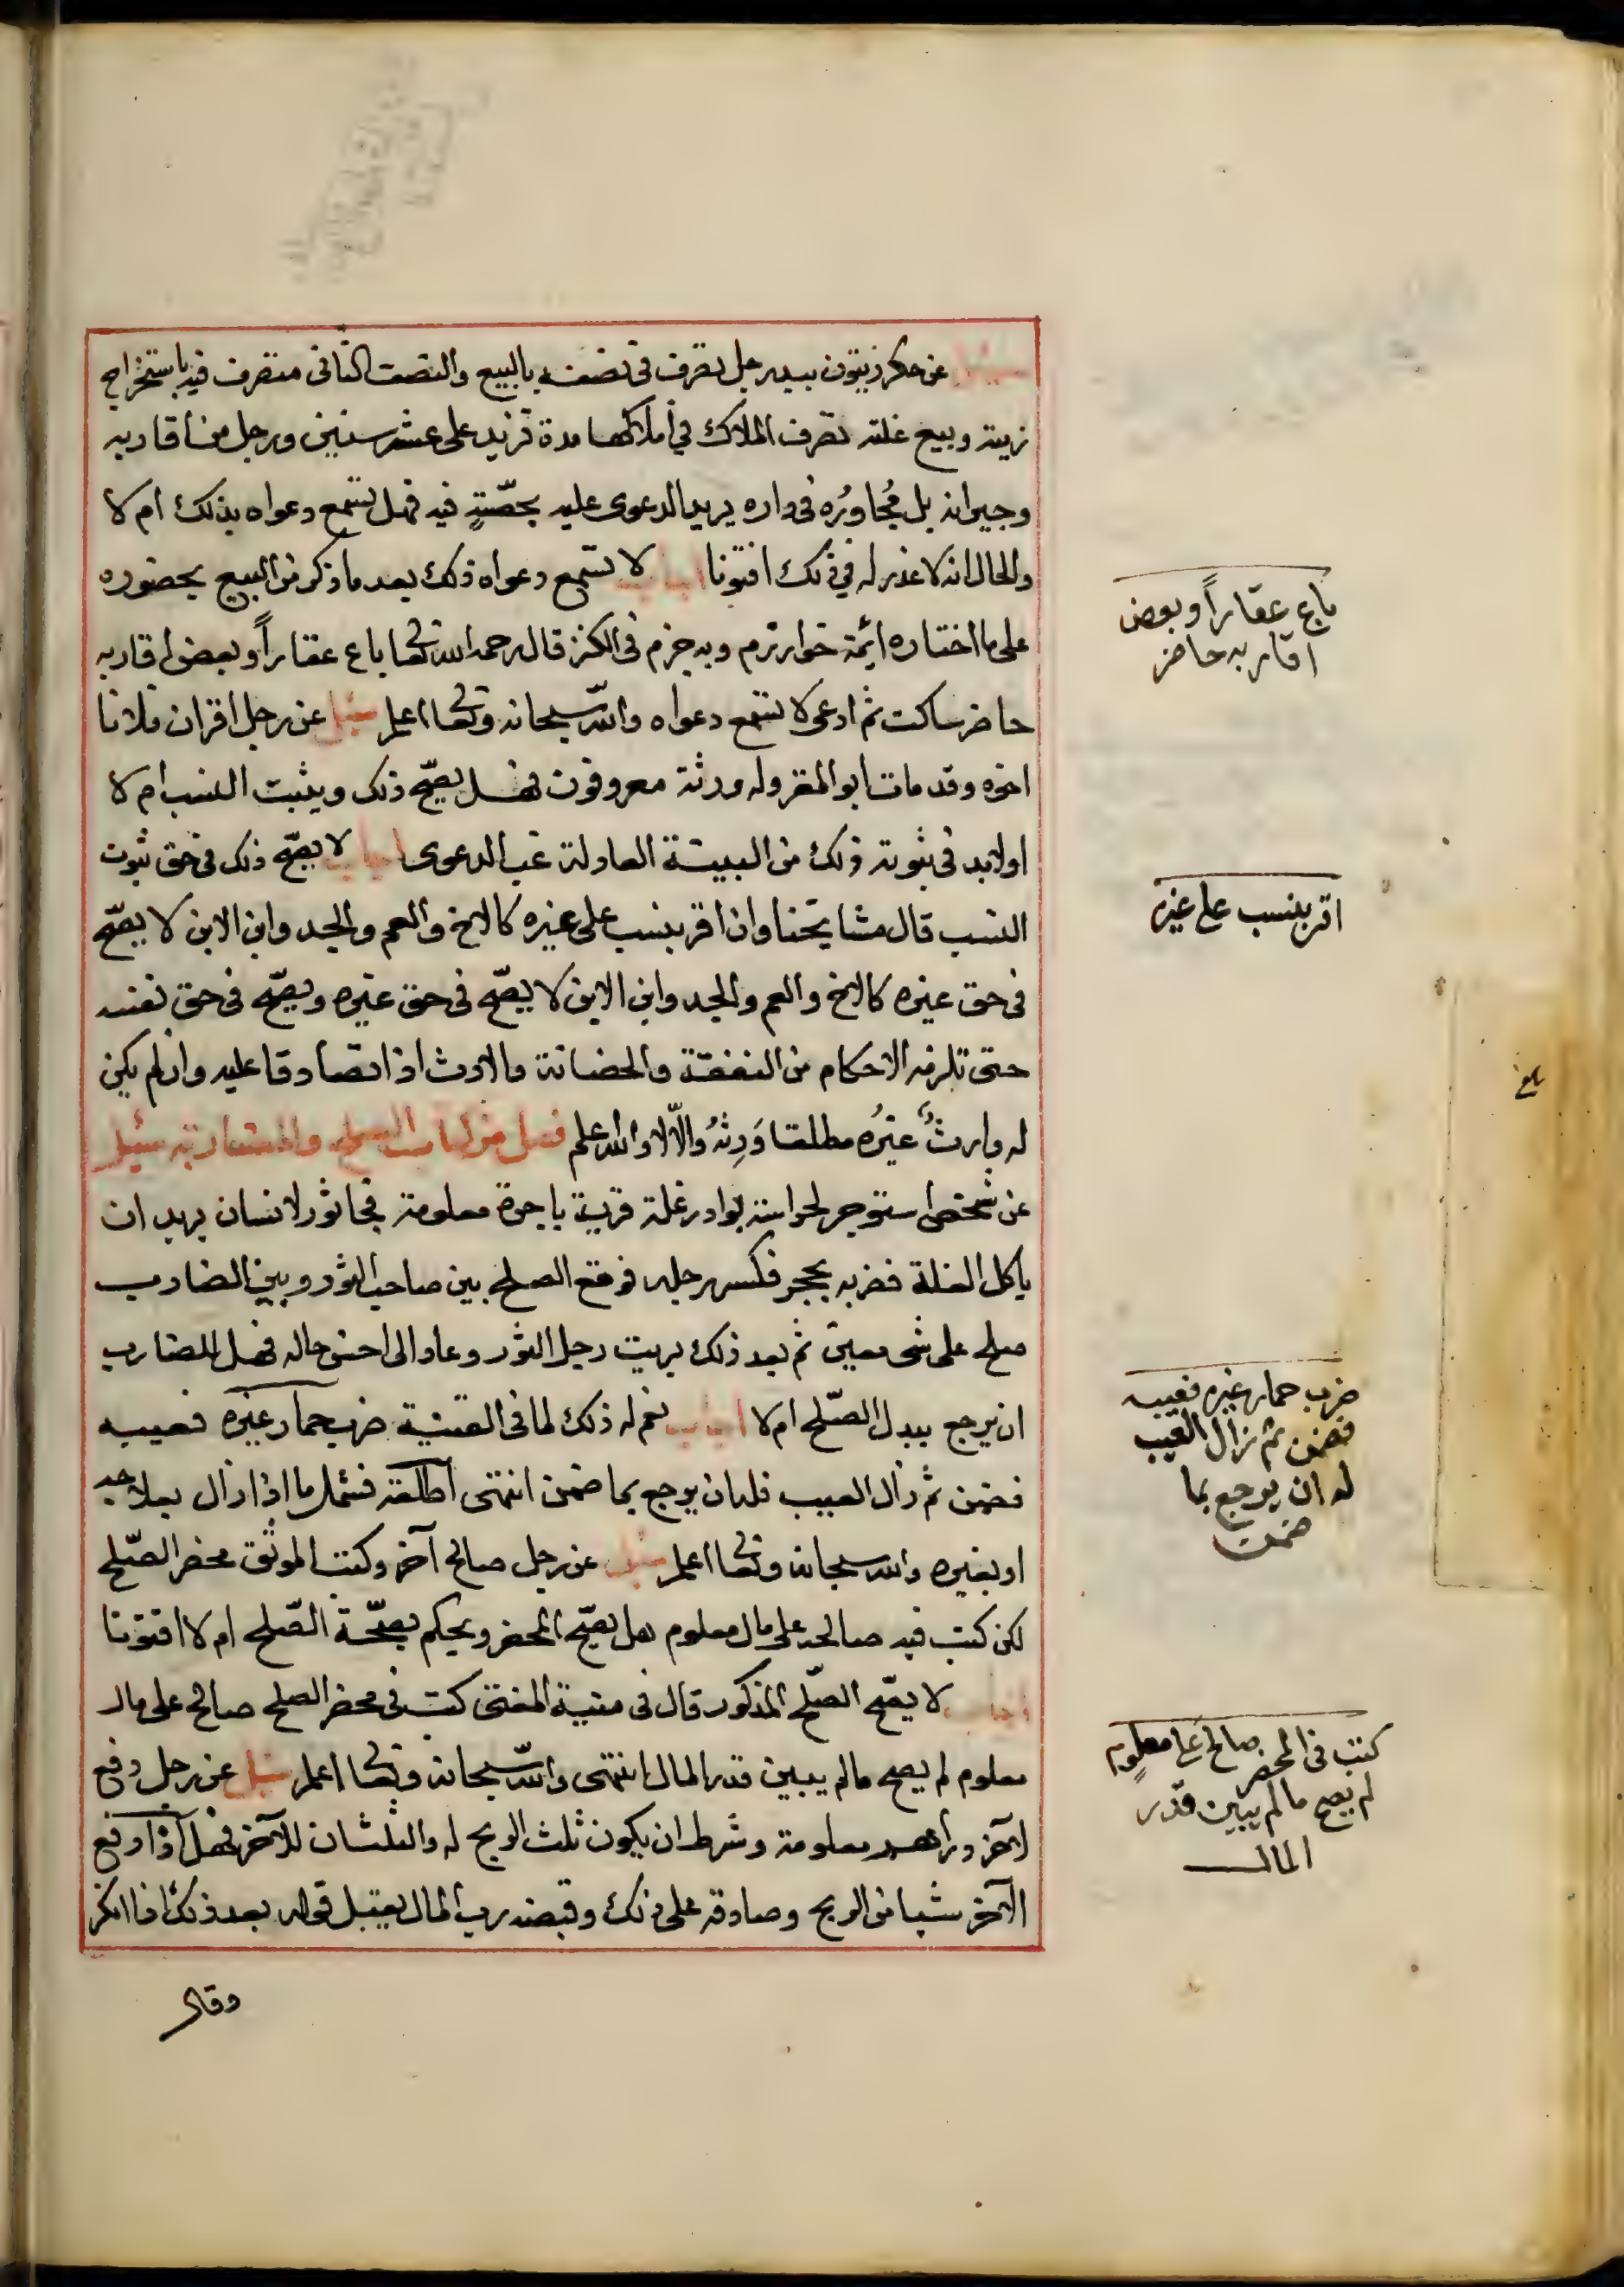 سئل عن حكر زيتون بيد رجل تصرف في نصفه بالبيع والنصف الثاني متصرف فيه باستخراج
زيته وبيع غلته تصرف الملاك في أملاكها مدة تزيد على عشر سنين ورجل من أقاربه
وجيرانه بل مُجاورُه في داره يريد الدعوى عليه بحصّةٍ فيه فهل تسمع دعواه بذلك ام لا
والحال انه لا عذر له في ذلك افتونا اجاب لا تسمع دعواه ذلك بعد ما ذكر من البيع بحضوره
على ما اختاره ائمة خوارزم وبه جزم في الكنز قال رحمه الله تعا باع عقاراً وبعض اقاربه
حاضر ساكت ثم ادعى لا تسمع دعواه والله سبحانه وتعا اعلم سئل عن رجل اقر ان فلانا
اخوه وقد مات ابو المقر وله ورثة معروفون فهل يصحّ ذلك ويثبت النسب ام لا
اولابد في ثبوته ذلك من البينة العادلة غب الدعوى اجاب لا يصحّ ذلك في حق ثبوت
النسب قال مشايخنا وان اقر بنسب على غيره كالاخ والعم والجد وابن الابن لا يصحّ
في حق غيره كالاخ والعم والجد وابن الابن لا يصحّ في حق غيره ويصحّ في حق نفسه
حتى تلزمه الاحكام من النفقة والحضانة والارث اذا تصادقا عليه وان لم يكن
له وارثٌ غيرُه مطلقا وَرِثهُ والّا لا والله اعلم فصل من كتاب الصلح والمضاربة سئيل
عن شخص استوجر لحراسة بوادر غلة قرية باجرة معلومة فجا ثور لانسان يريد ان
ياكل الغلة فضربه بحجر فكسر رجله فوقع الصلح بين صاحب الثور وبين الضارب
صلح على شى معين ثم بعد ذلك بريت رجل الثور وعاد الى احسن حاله فهل للضارب
ان يرجع ببدل الصّلح ام لا اجاب نعم له ذلك لما في القنية ضرب حمار غيره فعيبه
فضمن ثم زال العيب فله ان يرجع بما ضمن انتهى اطلقه فشمل ما اذا زال بعلاجه
او بغيره والله سبحانه وتعا اعلم سئيل عن رجل صالح آخر وكتب الموثق محضر الصّلح
لكن كتب فيه صالحه على مال معلوم هل يصحّ المحضر ويحكم بصحّة الصّلح ام لا افتونا
اجاب لا يصحّ الصّلح المذكور قال في منية المفتى كتب في محضر الصلح صالح على مال
معلوم لم يصح مالم يبين قدر المال انتهى والله سبحانه وتعا اعلم سئيل عن رجل دفع
لآخر دراهم معلومة وشرط ان يكون ثلث الربح له والثلثان للآخر فهل اذا دفع
الآخر شيا من الربح وصادقه على ذلك وقبضه رب المال يقبل قوله بعد ذلك اذا انكر
وقال
باع عقاراً وبعض
اقاربه حاضر
اقر بنسب على غيره
بلغ
ضرب حمار غيره فعيبه
فضمن ثم زال العيب
له ان يرجع بما
ضمن
كتب في المحضر صالح على معلوم
لم يصح مالم يبين قدر
المال